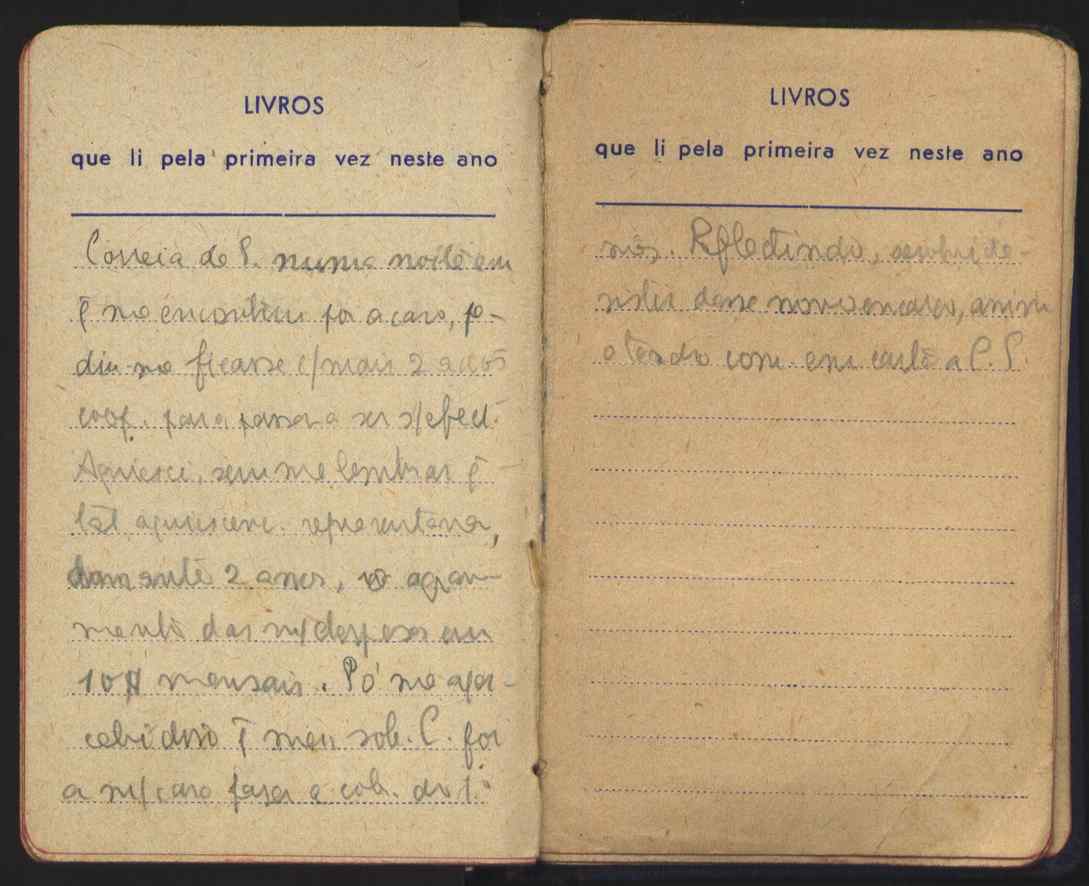 LIVROS
que li pela primeira vez neste ano
Correia de S. numa noite em
q̃ me encontrou por acaso, pe-
diu-me ficasse c/mais 2 acções
coop. para passar a ser s/efect.
Aquiesci, sem me lembrar q̃
tal aquiescenc. representava,
durante 2 anos, o agrava-
mento das m/despesas em
10$ mensais. Só me aper-
cebi disso q̃ meu sob. C. foi
a m/casa fazer a cob. do 1.º
LIVROS
que li pela primeira vez neste ano
mês. Reflectindo, de-
sistir desse novo encargo,
em carta a C. S.